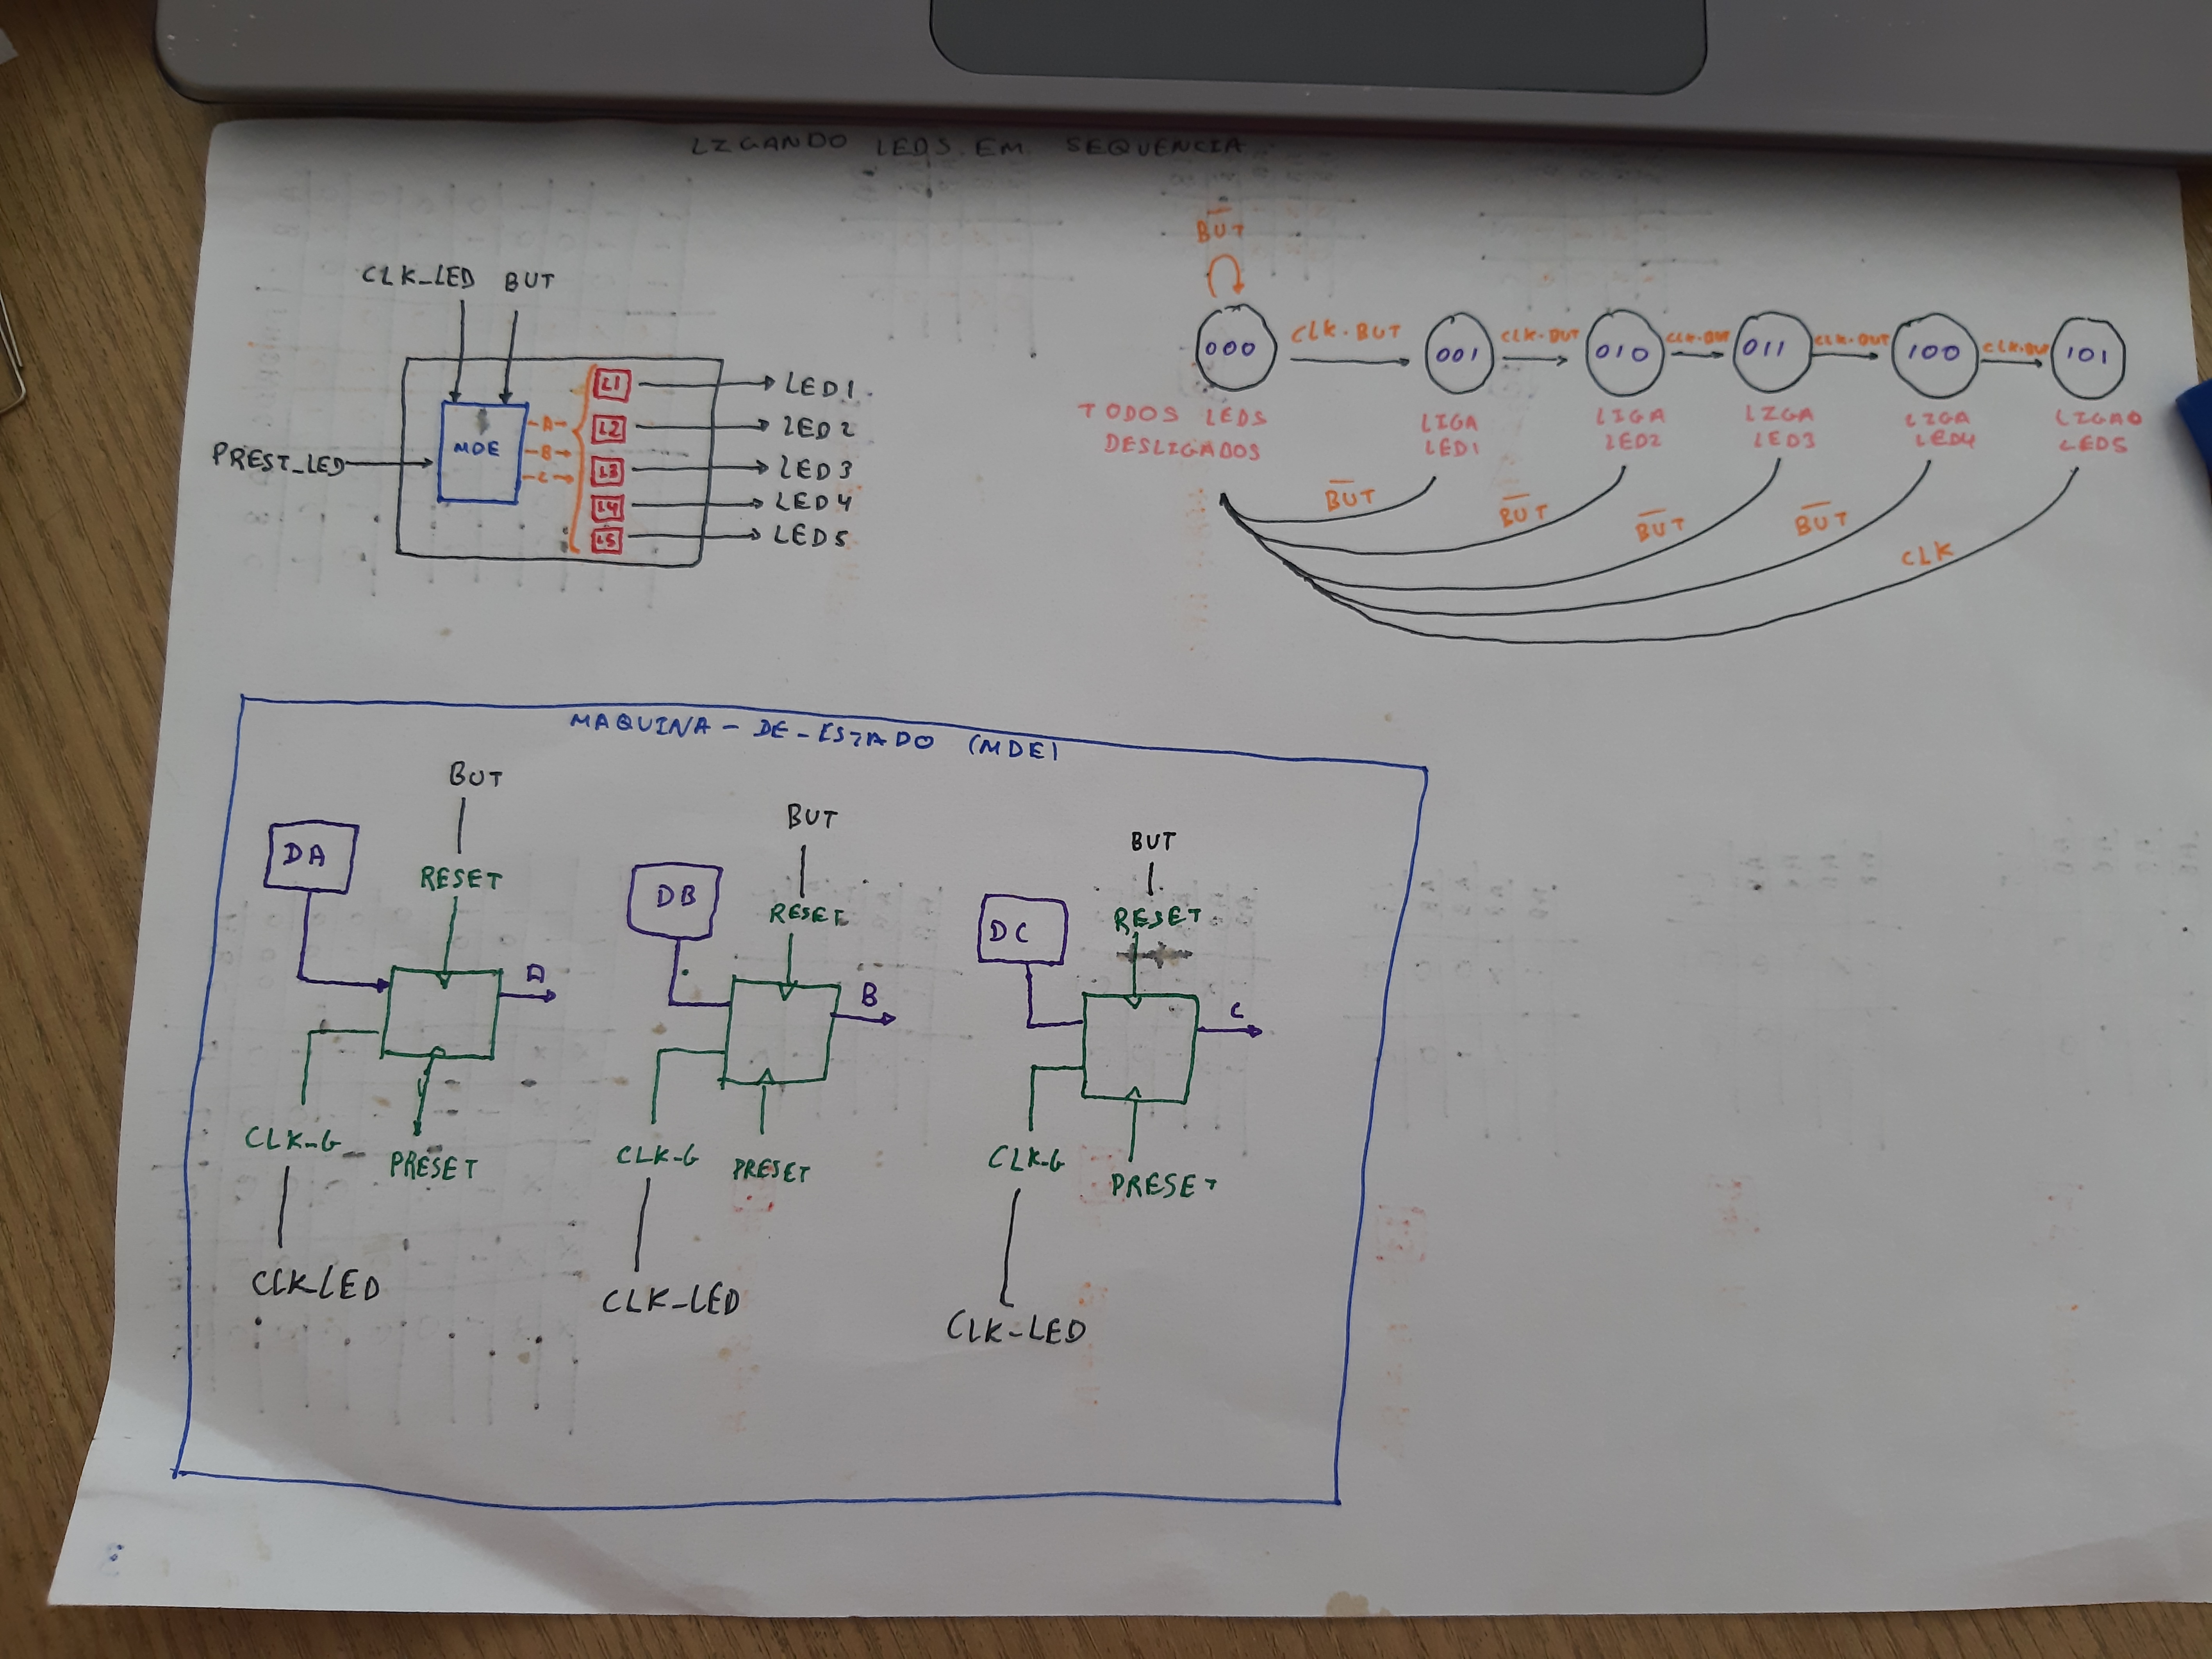 LIGANDO LEDS EM SEQUENCIA
CLK_LED BUT
PREST_LED
MDE
A
B
C
L1
L2
L3
L4
L5
LED1
LED2
LED3
LED4
LED5
BUT
000
CLK.BUT
001
CLK.BUT
010
CLK.BUT
011
CLK.BUT
100
CLK.BUT
101
TODOS LEDS
DESLIGADOS
LIGA
LED1
LIGA
LED2
LIGA
LED3
LIGA
LED4
LIGAO
LED5
BUT
BUT
BUT
BUT
CLK
MAQUINA-DE-ESTADO (MDE)
BUT
DA
RESET
A
CLK-G
PRESET
CLK_LED
BUT
DB
RESET
B
CLK-G
PRESET
CLK_LED
BUT
DC
RESET
C
CLK-G
PRESET
CLK-LED